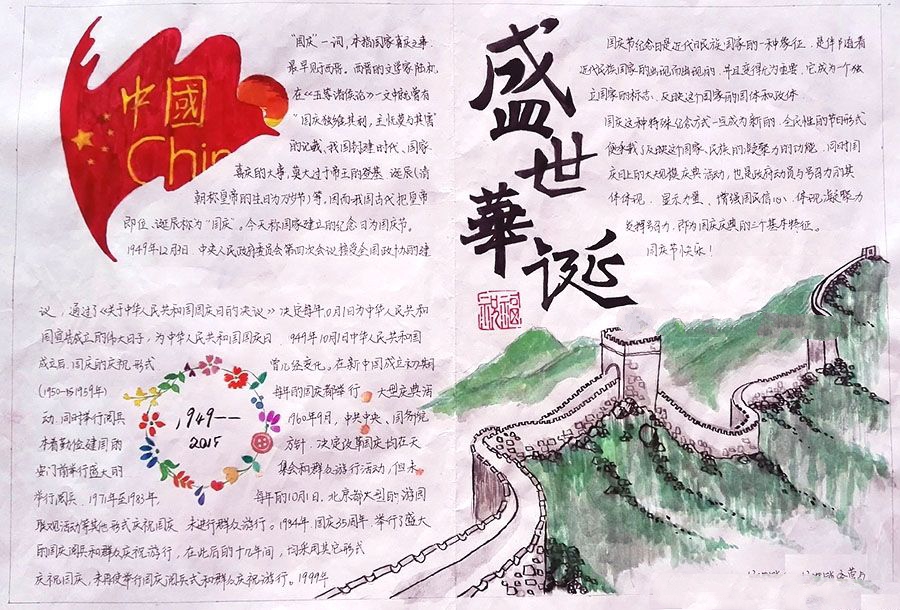 中國
China
"国庆"一词，本指国家喜庆之事
最早见于西晋。西晋的文学家陆机
在《五等诸侯论》一文中就曾有
"国庆独飨其利，主忧莫与其害"
的记载、我国封建时代、国家
喜庆的大事，莫大过于帝王的登基、诞辰(清
朝称皇帝的生日为万岁节)等，因而我国古代把皇帝
即位、诞辰称为"国庆"。今天称国家建立的纪念日为国庆节。
1949年12月3日，中央人民政府委员会第四次会议接受全国政协的建
议，通过了《关于中华人民共和国国庆日的决议》决定每年10月1日为中华人民共和
国宣告成立的伟大日子，为中华人民共和国国庆日 949年10月1日中华人民共和国
成立后，国庆的庆祝形式 曾几经变化。在新中国成立初期
(1950-1959年) 每年的国庆都举行 大型庆典活
动，同时举行阅兵 1960年9月，中共中央、国务院
本着勤俭建国的 方针，决定改革国庆 在天
安门前举行盛大的 集会和群众游行活动，但未
举行阅兵、1971年至1983年， 每年的10月1日，北京都大型的游园
联欢活动等其他形式庆祝国庆 未进行群众游行。1984年，国庆35周年，举行了盛大
的国庆阅兵和群众庆祝游行，在此后的十几年间，均采用其它形式
庆祝国庆，未再使举行国庆阅兵式和群众庆祝游行。1999年
1949——
2015
盛世華诞
祝福
国庆节纪念日是近代民族国家的一种象征，是伴随着
近代民族国家的出现而出现的，并且变得尤为重要，它成为一个独
立国家的标志、反映这个国家的国体和政体
国庆这种特殊纪念方式一旦成为新的、全民性的节日形式
便承载了反映这个国家、民族的凝聚力的功能，同时国
庆日上的大规模庆典活动，也是政府动员与号召力的具
体体现，显示力量、增强国民信心，体现凝聚力
发挥号召力，即为国庆庆典的三个基本特征。
国庆节快乐！